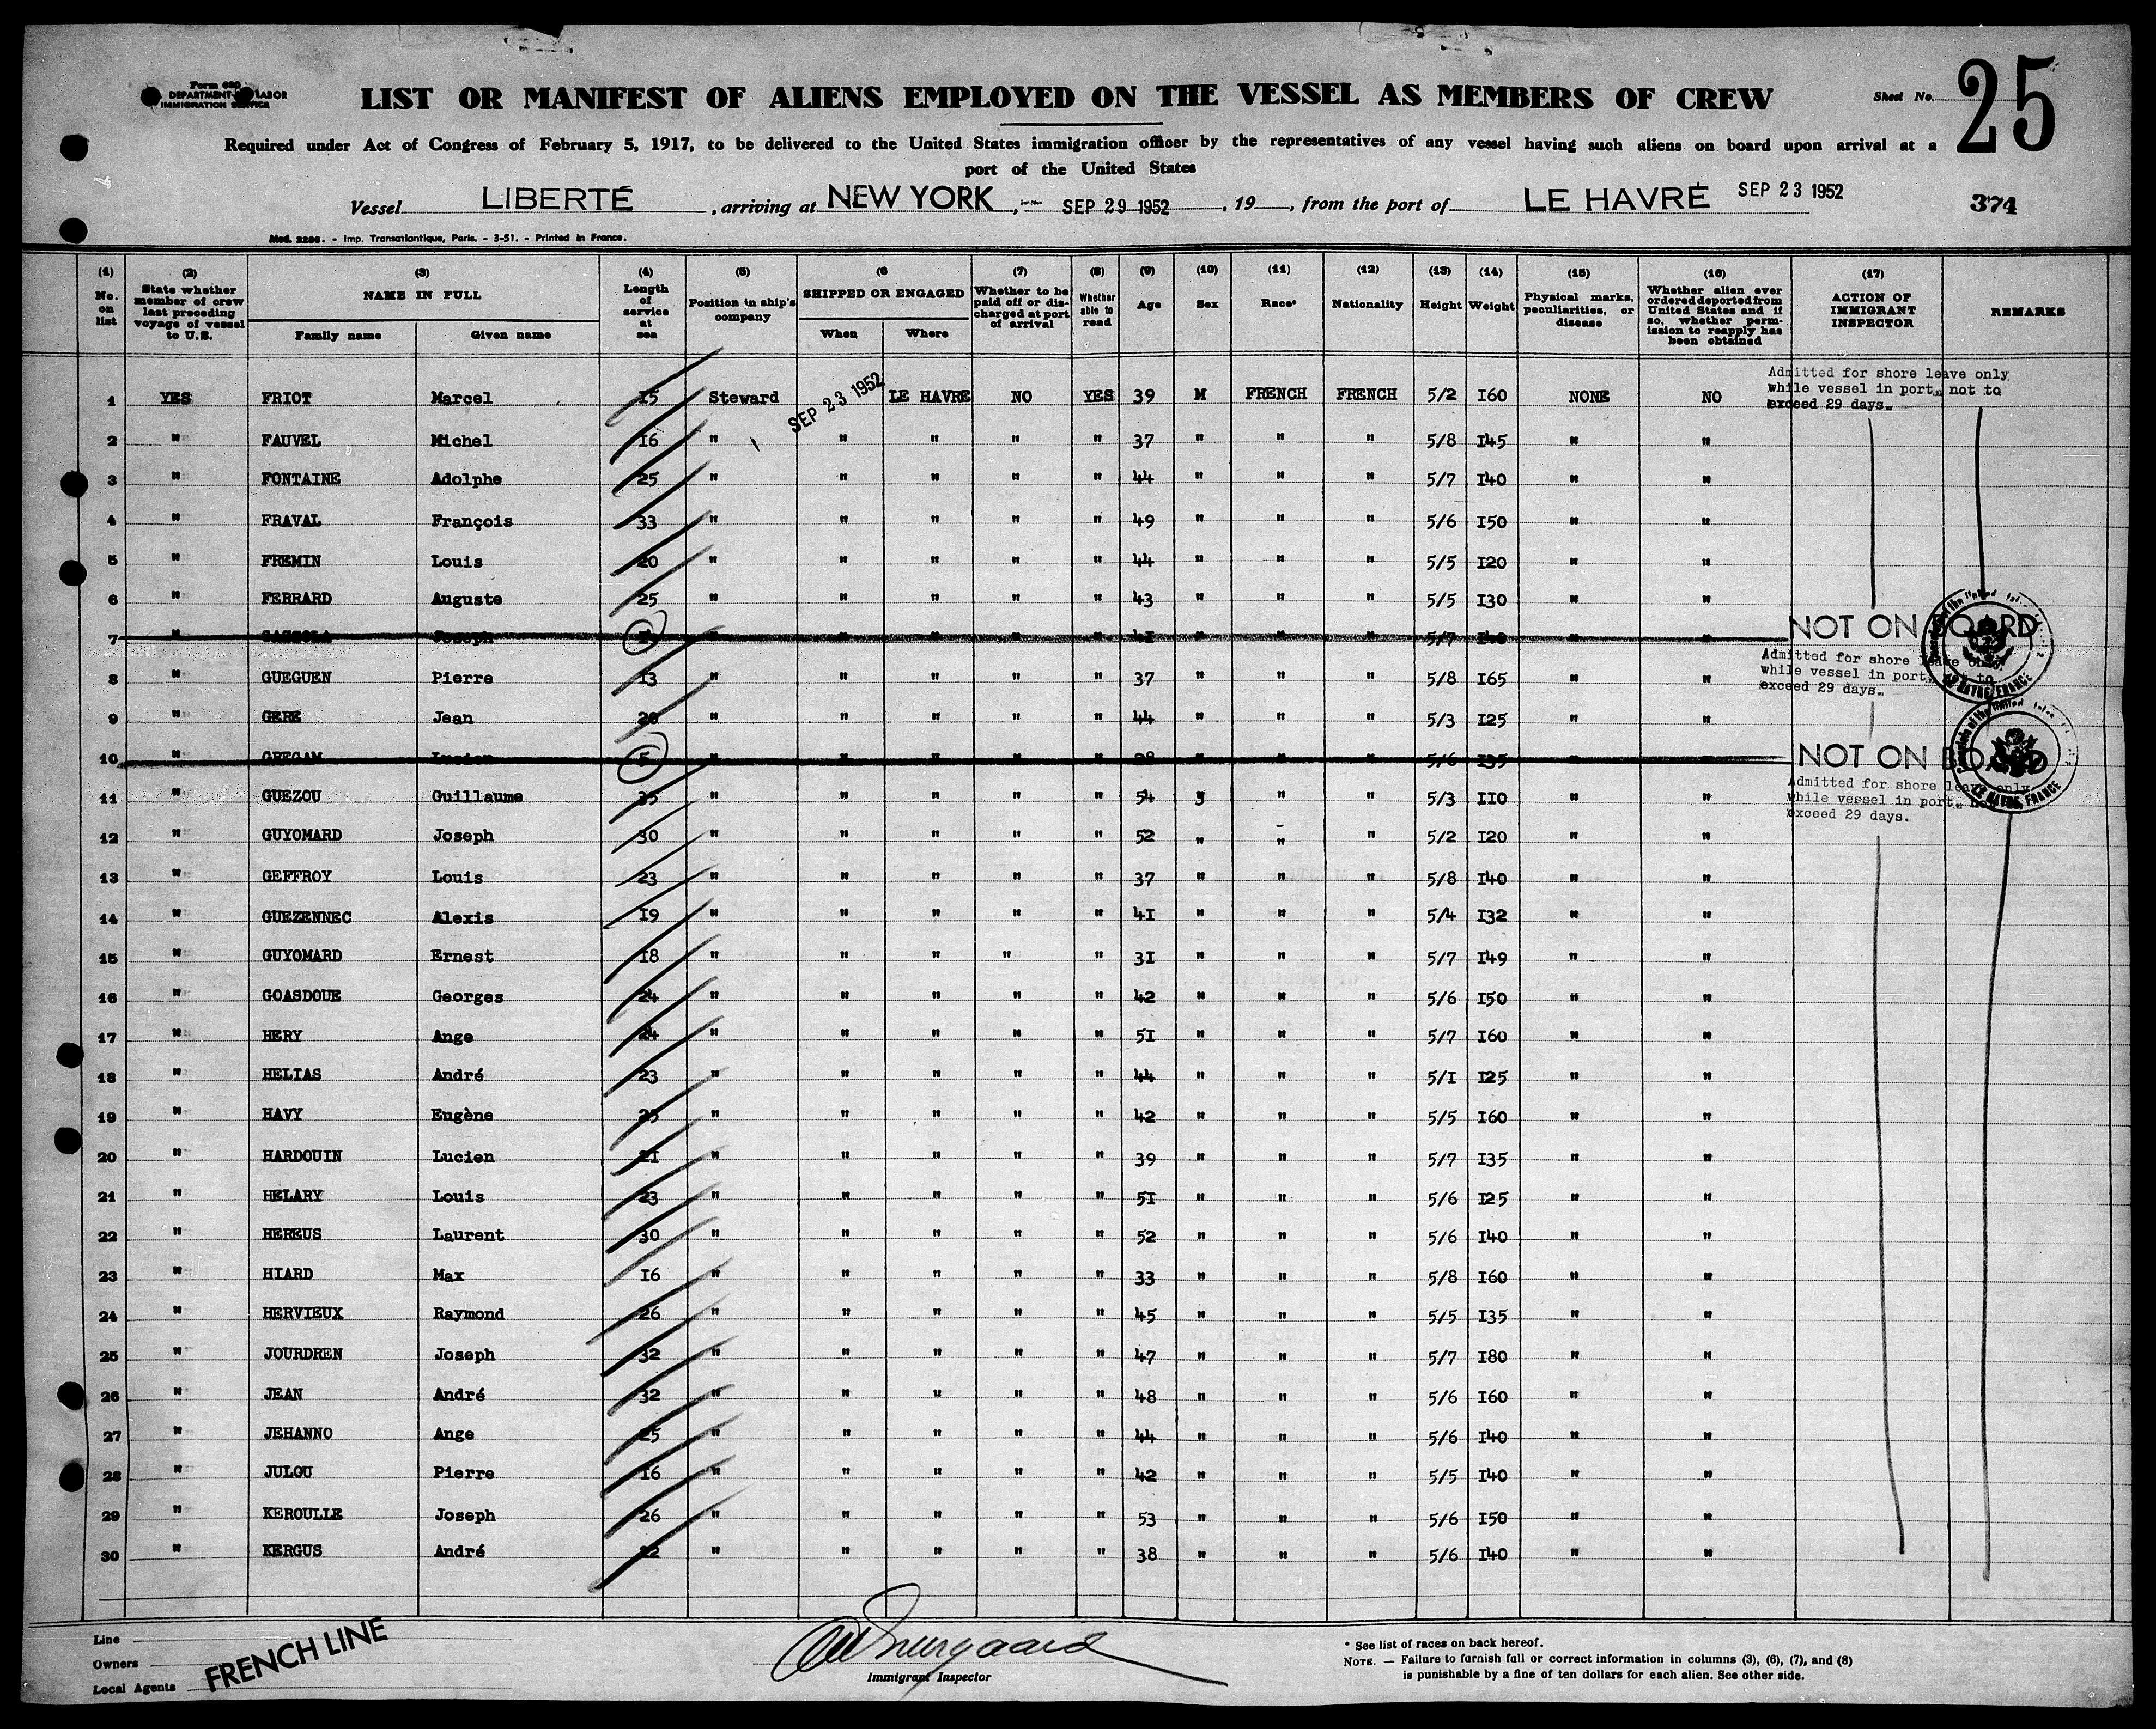 Form 680
DEPARTMENT OF LABOR
IMMIGRATION SERVICE
LIST OR MANIFEST OF ALIENS EMPLOYED ON THE VESSEL AS MEMBERS OF CREW
Sheet No. 25
Required under Act of Congress of February 5, 1917, to be delivered to the United States immigration officer by the representatives of any vessel having such aliens on board upon arrival at a
port of the United States
Vessel LIBERTÉ, arriving at NEW YORK, SEP 29 1952, 19, from the port of LE HAVRE SEP 23 1952 374
Mod. 2286. - Imp. Transatlantique, Paris. - 3-51. - Printed in France.
(1) No. on list
(2) State whether member of crew last preceding voyage of vessel to U.S.
(3) NAME IN FULL
Family name Given name
(4) Length of service at sea
(5) Position in ship's company
(6 SHIPPED OR ENGAGED
When Where
(7) Whether to be paid off or discharged at port of arrival
(8) Whether able to read
(9) Age
(10) Sex
(11) Race*
(12) Nationality
(13) Height
(14) Weight
(15) Physical marks, peculiarities, or disease
(16) Whether alien ever ordered deported from United States and if so, whether permission to reapply has been obtained
(17) ACTION OF IMMIGRANT INSPECTOR
REMARKS
1 YES FRIOT Marcel 15 Steward SEP 23 1952 LE HAVRE NO YES 39 M FRENCH FRENCH 5/2 I60 NONE NO
Admitted for shore leave only
while vessel in port, not to
exceed 29 days.
2 " FAUVEL Michel I6 " " " " " 37 " " " 5/8 I45 " "
3 " FONTAINE Adolphe 25 " " " " " 44 " " " 5/7 I40 " "
4 " FRAVAL François 33 " " " " " 49 " " " 5/6 I50 " "
5 " FREMIN Louis 20 " " " " " 44 " " " 5/5 I20 " "
6 " FERRARD Auguste 25 " " " " " 43 " " " 5/5 I30 " "
7 " GAZZOLA Joseph " " " " " 4I " " " 5/7 I40 " " NOT ON BOARD
Admitted for shore leave only
while vessel in port, to
exceed 29 days.
8 " GUEGUEN Pierre I3 " " " " " 37 " " " 5/8 I65 " "
9 " GERE Jean 20 " " " " " 44 " " " 5/3 I25 " "
10 " GREGAM Lucien 5 " " " " " 28 " " " 5/6 I35 " " NOT ON BOARD
LE HAVRE, FRANCE
Admitted for shore leave only
while vessel in port, no
exceed 29 days.
LE HAVRE, FRANCE
11 " GUEZOU Guillaume 35 " " " " " 54 " " " 5/3 II0 " "
12 " GUYOMARD Joseph 30 " " " " " 52 " " " 5/2 I20 " "
13 " GEFFROY Louis 23 " " " " " 37 " " " 5/8 I40 " "
14 " GUEZENNEC Alexis I9 " " " " " 4I " " " 5/4 I32 " "
15 " GUYOMARD Ernest I8 " " " " " 3I " " " 5/7 I49 " "
16 " GOASDOUE Georges 24 " " " " " 42 " " " 5/6 I50 " "
17 " HERY Ange 24 " " " " " 5I " " " 5/7 I60 " "
18 " HELIAS André 23 " " " " " 44 " " " 5/I I25 " "
19 " HAVY Eugène 25 " " " " " 42 " " " 5/5 I60 " "
20 " HARDOUIN Lucien 2I " " " " " 39 " " " 5/7 I35 " "
21 " HELARY Louis 23 " " " " " 5I " " " 5/6 I25 " "
22 " HEREUS Laurent 30 " " " " " 52 " " " 5/6 I40 " "
23 " HIARD Max I6 " " " " " 33 " " " 5/8 I60 " "
24 " HERVIEUX Raymond 26 " " " " " 45 " " " 5/5 I35 " "
25 " JOURDREN Joseph 32 " " " " " 47 " " " 5/7 I80 " "
26 " JEAN André 32 " " " " " 48 " " " 5/6 I60 " "
27 " JEHANNO Ange 25 " " " " " 44 " " " 5/6 I40 " "
28 " JULOU Pierre I6 " " " " " 42 " " " 5/5 I40 " "
29 " KEROULLE Joseph 26 " " " " " 53 " " " 5/6 I50 " "
30 " KERGUS André 22 " " " " " 38 " " " 5/6 I40 " "
Line
Owners
Local Agents
FRENCH LINE
Immigrant Inspector
* See list of races on back hereof.
NOTE. — Failure to furnish full or correct information in columns (3), (6), (7), and (8)
is punishable by a fine of ten dollars for each alien. See other side.